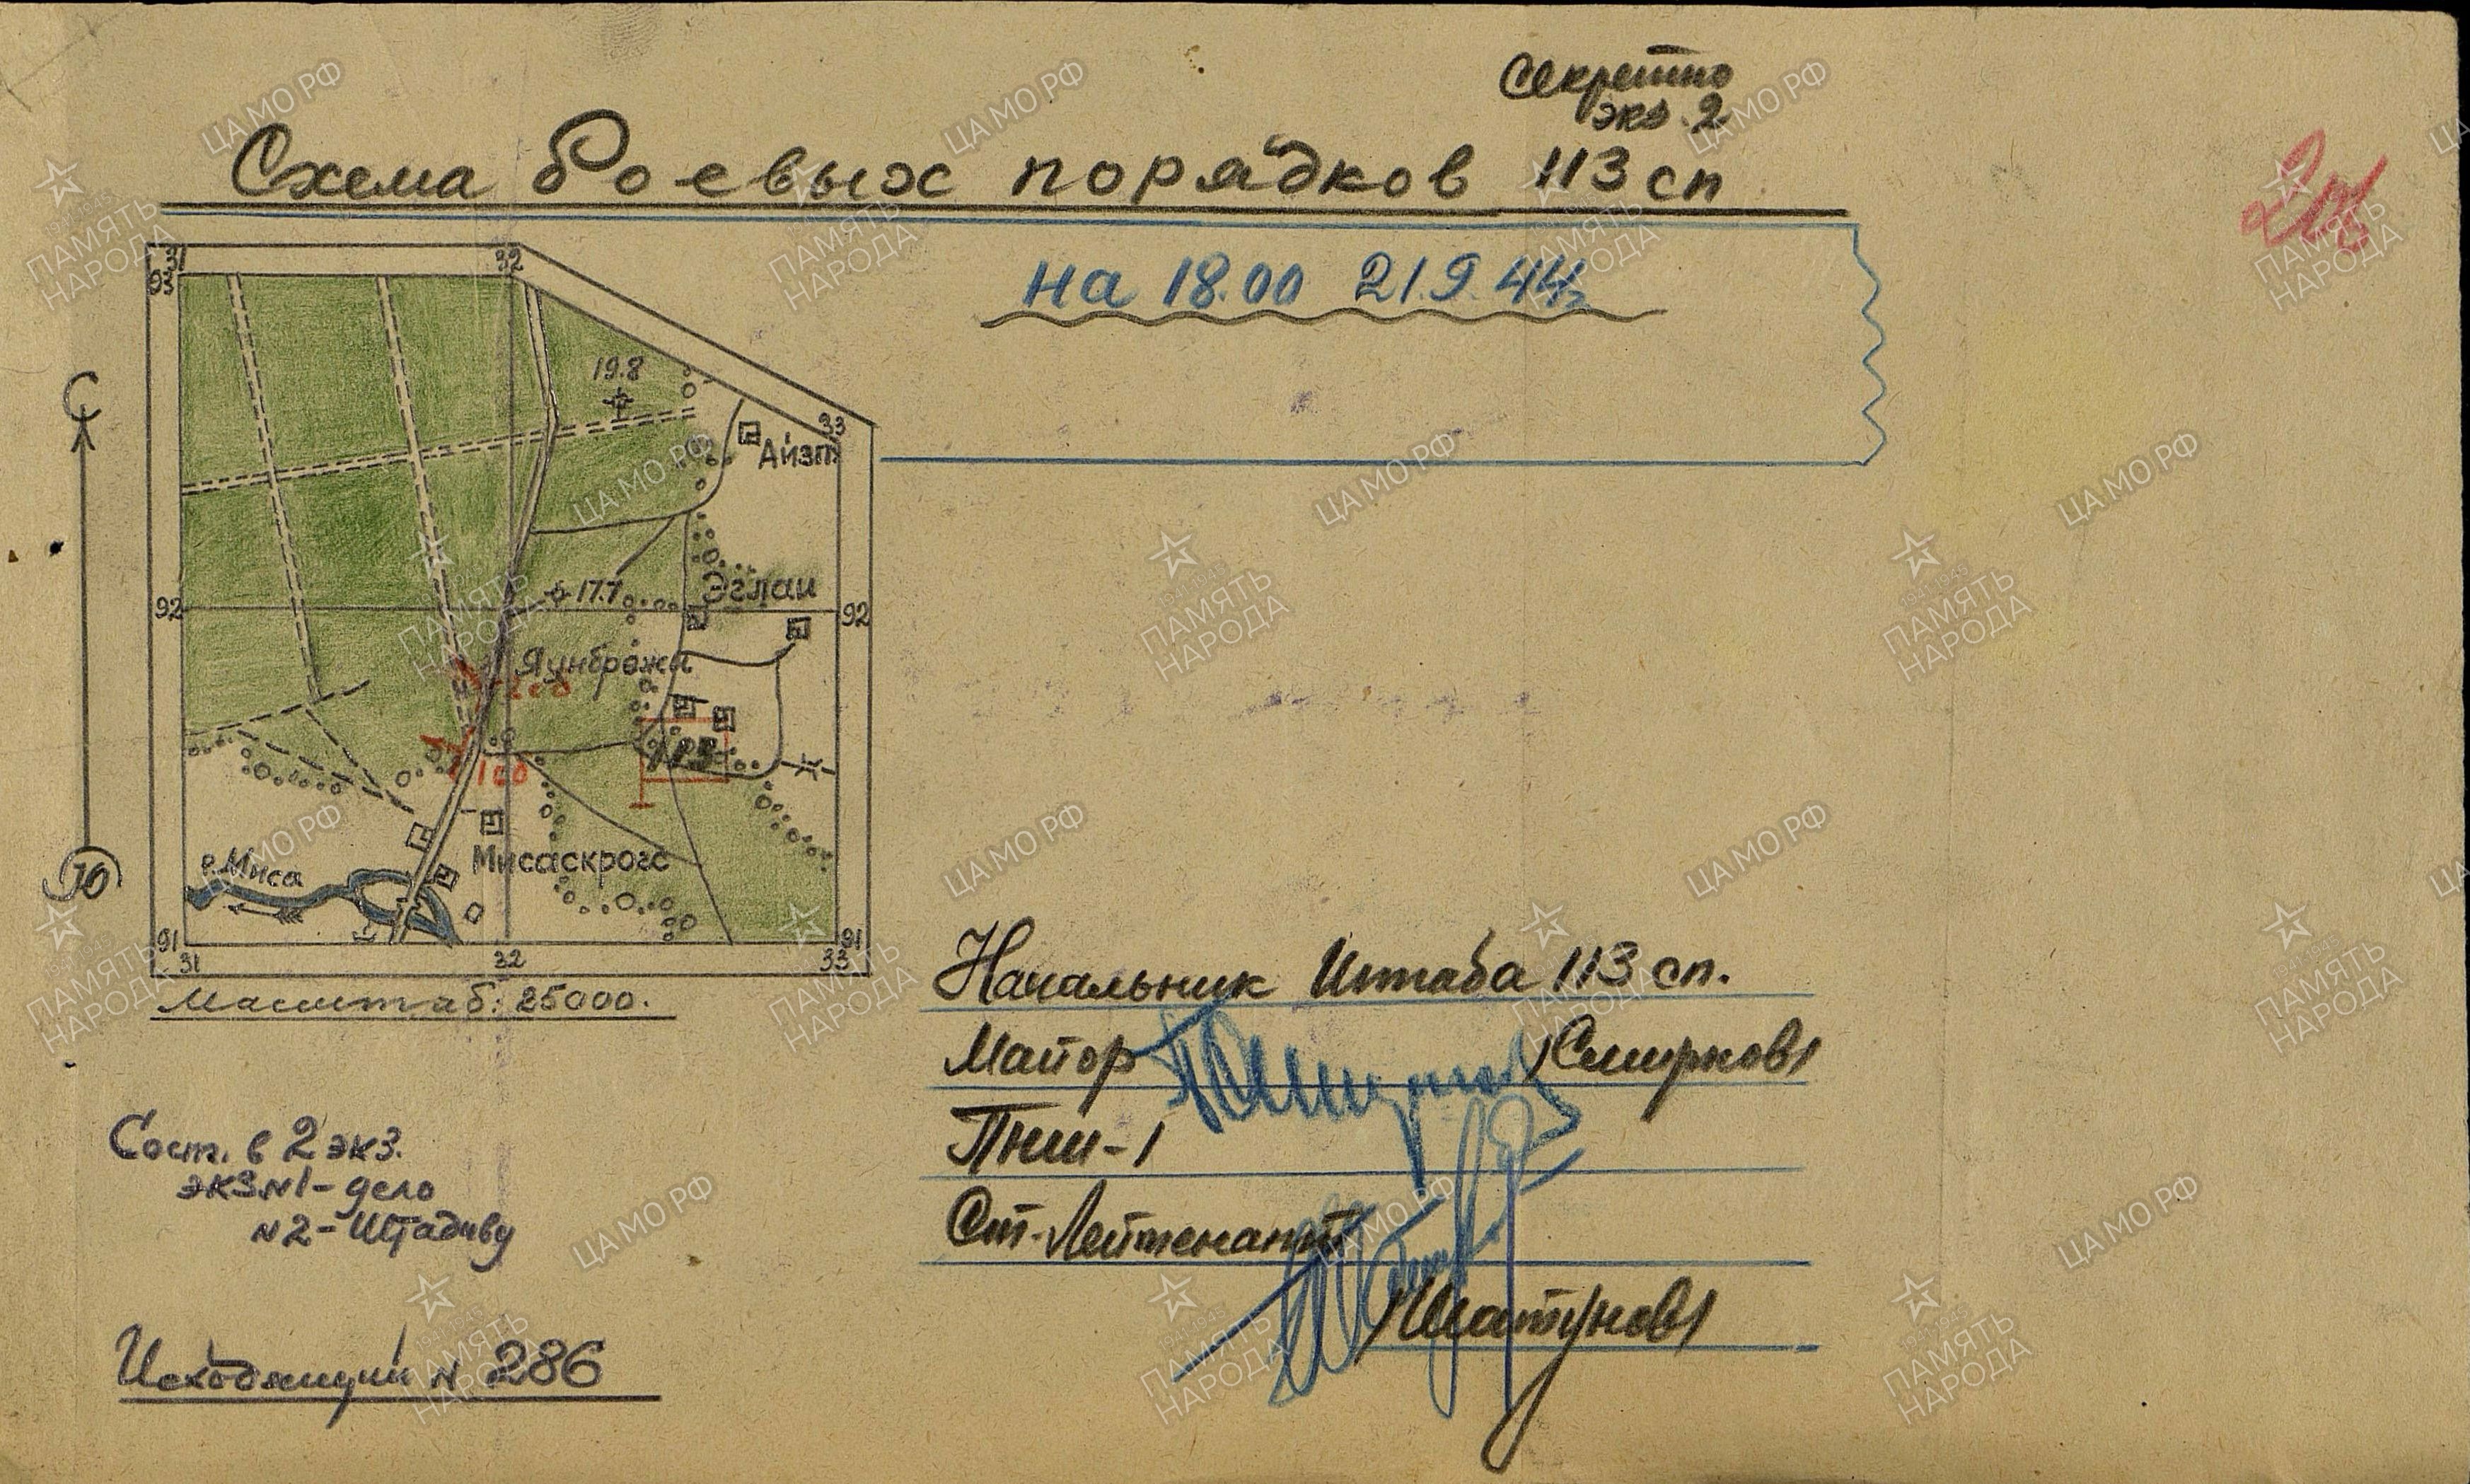 Секретно
экз. 2
Схема боевых порядков 113 сп
на 18.00 21.9.44г
31
32
03
19.8
33
Айзп.
С
17.7
Эглаи
92
92
Яунброжи
200
113
100
Мисаскрогс
р. Миса
Ю
91
91
31
32
33
Масштаб: 25000.
Начальник Штаба 113 сп.
Майор /Смирнов/
ПНШ-1
Ст. Лейтенант
/Шатунов/
Сост. в 2 экз.
экз. N1 - дело
N2 - Штадиву
Исходящий N 286
ЦАМО РФ
ПАМЯТЬ НАРОДА